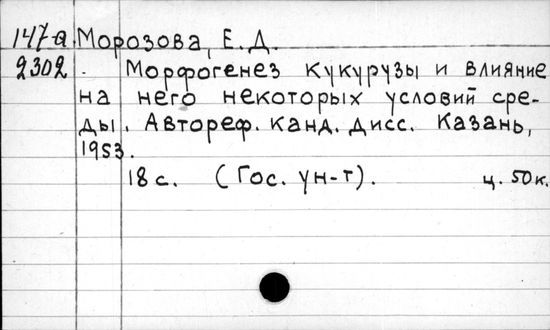 147а Морозова, Е.Д.
2302 Морфогенез кукурузы и влияние
на него некоторых условий сре-
ды. Автореф. канд. дисс. Казань,
1953.
18 с. (Гос. ун-т). ц. 50к.